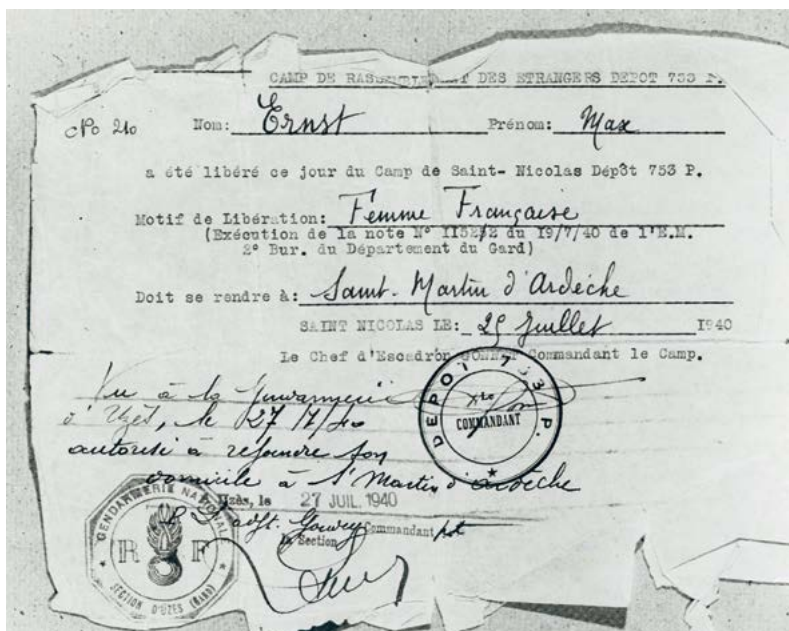 CAMP DE RASSEMBLEMENT DES ETRANGERS DEPOT 753 P.
No 210 Nom: Ernst Prénom: Max
a été libéré ce jour du Camp de Saint- Nicolas Dépôt 753 P.
Motif de Libération: Femme Française
(Exécution de la note N° du 19/7/40 de l'E.M.
2° Bur. du Département du Gard)
Doit se rendre à: Saint-Martin d'Ardèche
SAINT NICOLAS LE: 25 Juillet 1940
Le Chef d'Escadron Commandant le Camp.
DEPOT 753 P.
COMMANDANT
Vu à la Gendarmerie
d'Uzès, le 27/7/40
autorisé à rejoindre son
domicile à St Martin d'ardèche
Uzès, le 27 JUIL. 1940
adjt. Commandant
la Section
GENDARMERIE NATIONALE
R F
SECTION D'UZES (GARD)